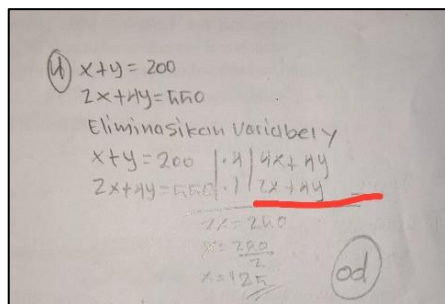 4 x+y = 200
2x+4y = 550
Eliminasikan Variabel y
x+y = 200 | .4 | 4x+4y
2x+4y = 550 | .1 | 2x+4y
2x = 250
x = 250/2
x = 125
od